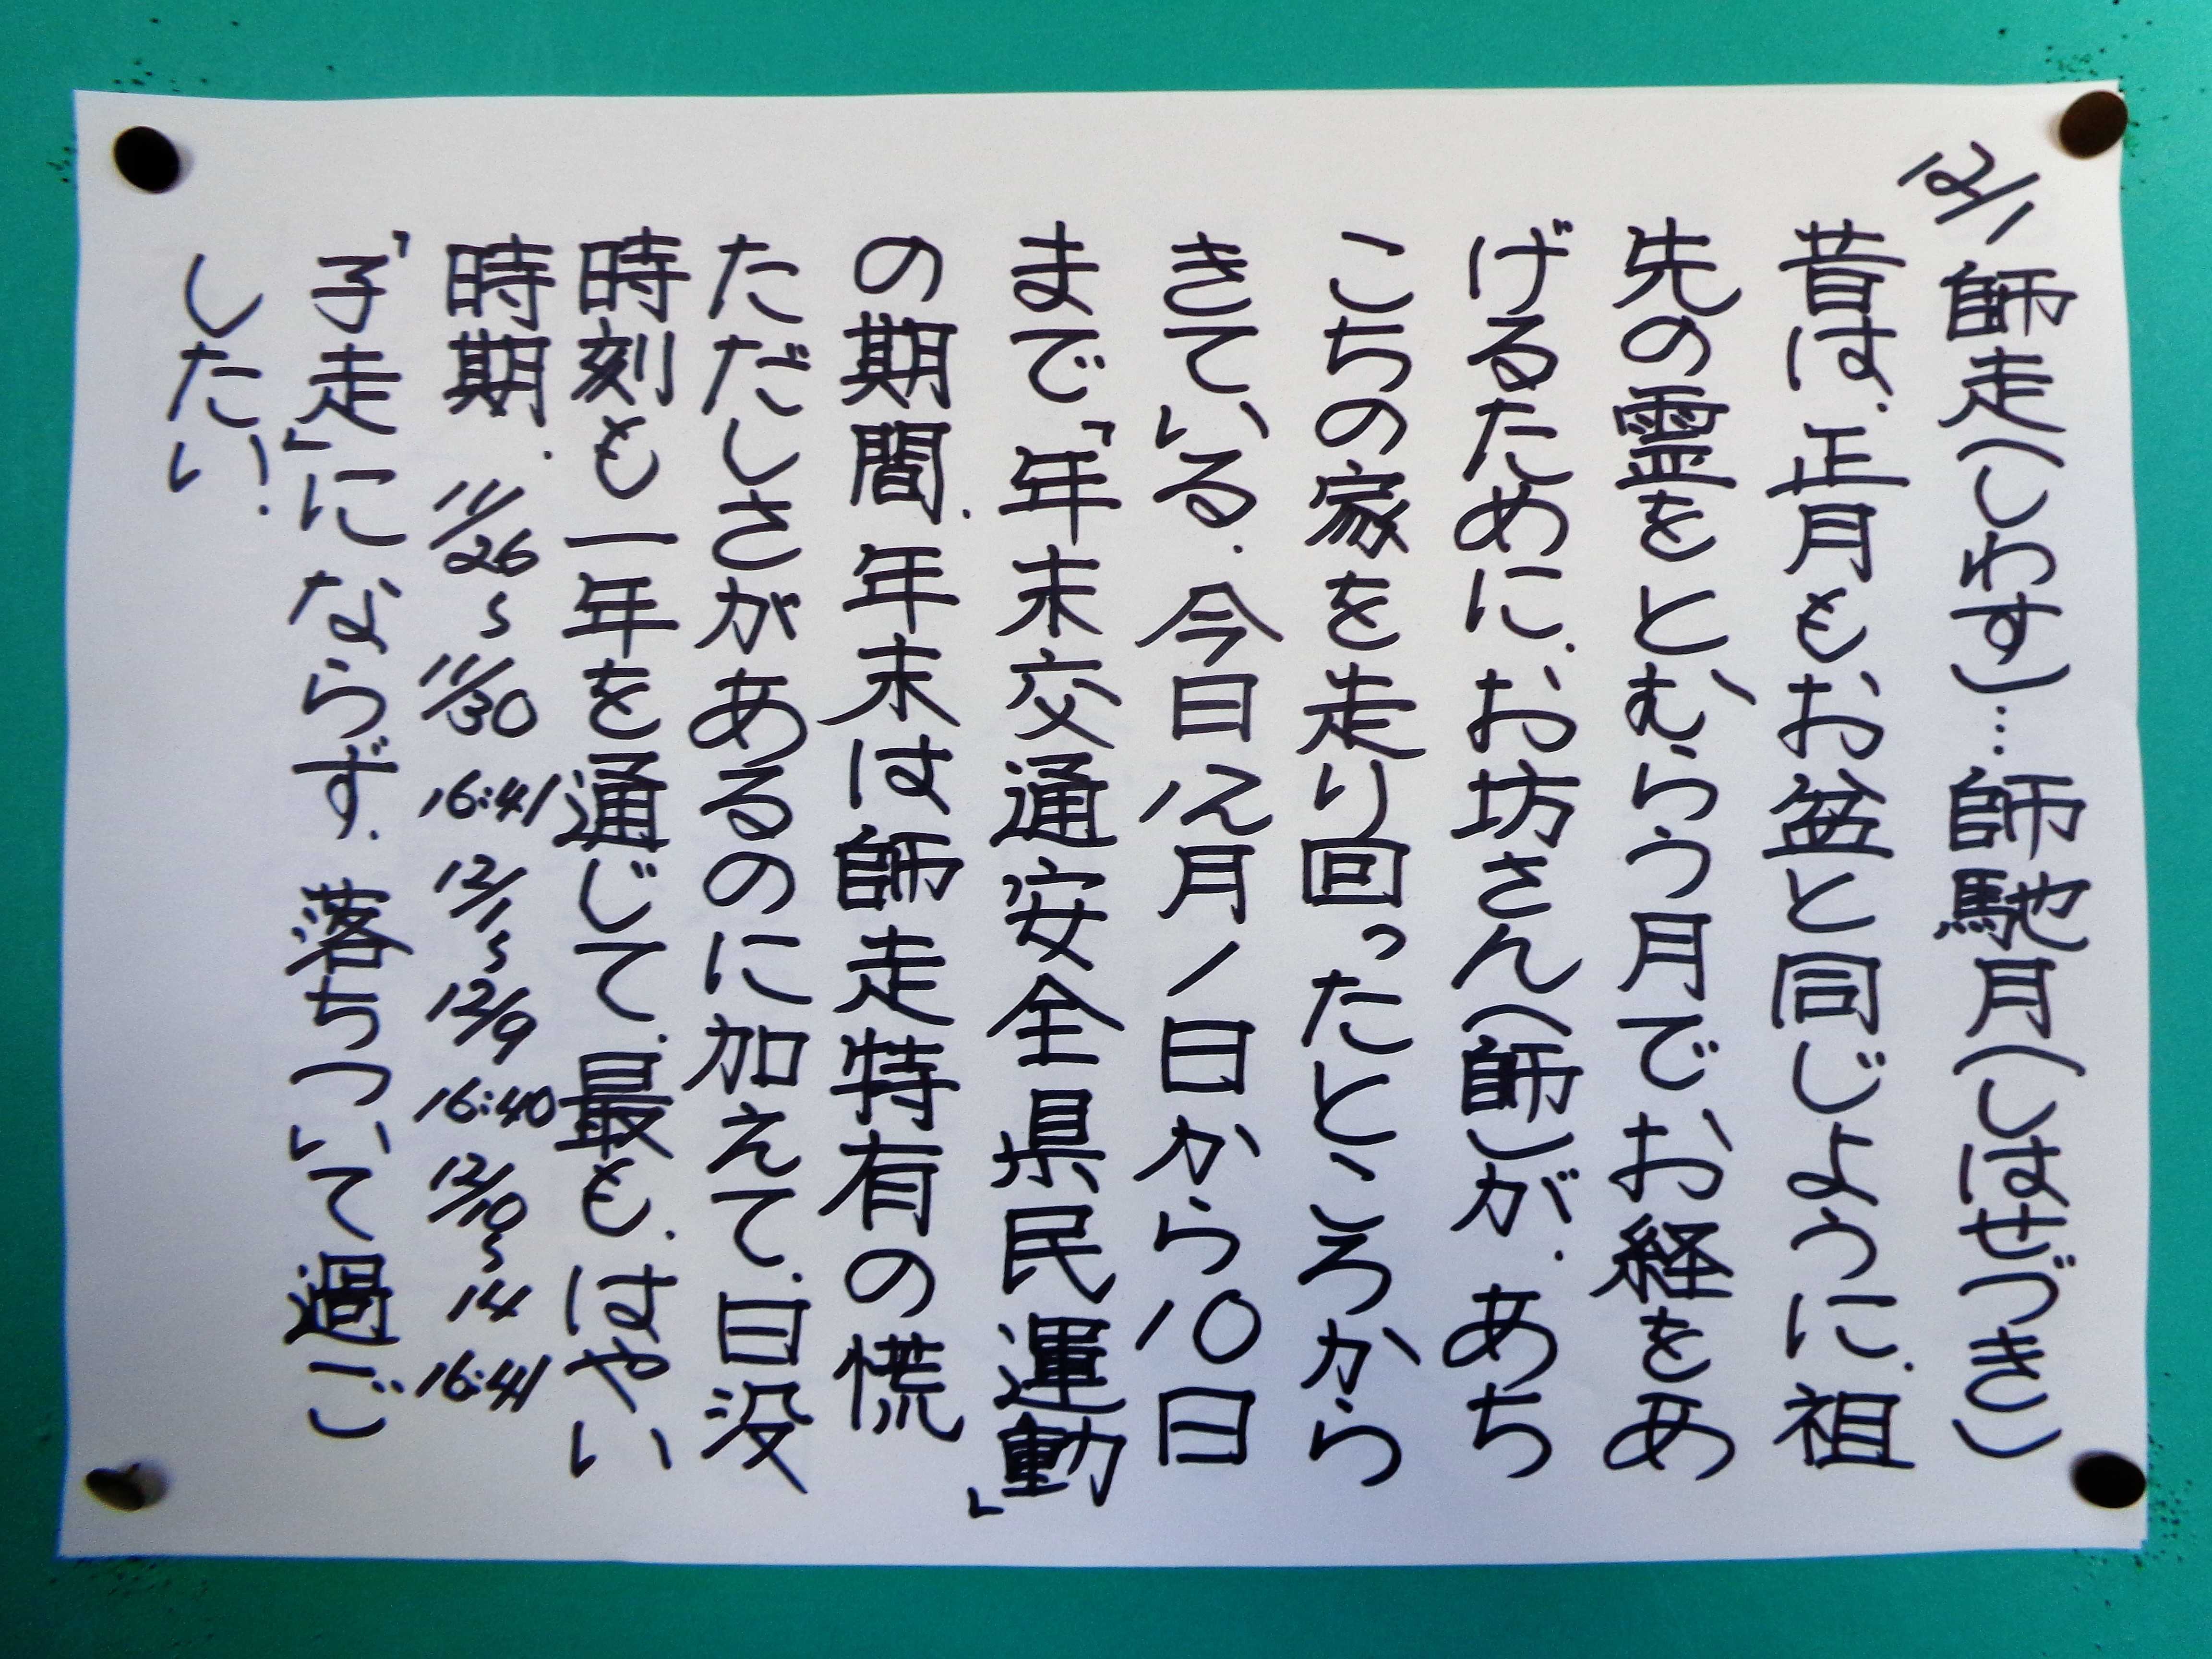 12/1 師走(しわす)…師馳月(しはせづき)
昔は、正月もお盆と同じように、祖
先の霊をとむらう月で、お経をあ
げるために、お坊さん(師)が、あち
こちの家を走り回ったところから
きている。今日12月1日から10日
まで、「年末交通安全県民運動」
の期間、年末は師走特有の慌
ただしさがあるのに加えて、日没
時刻も一年を通じて、最も、はやい
時期。11/26~11/30 16:41 12/1~12/9 16:40 12/10~14 16:41
「子走」にならず、落ちついて過ご
したい!